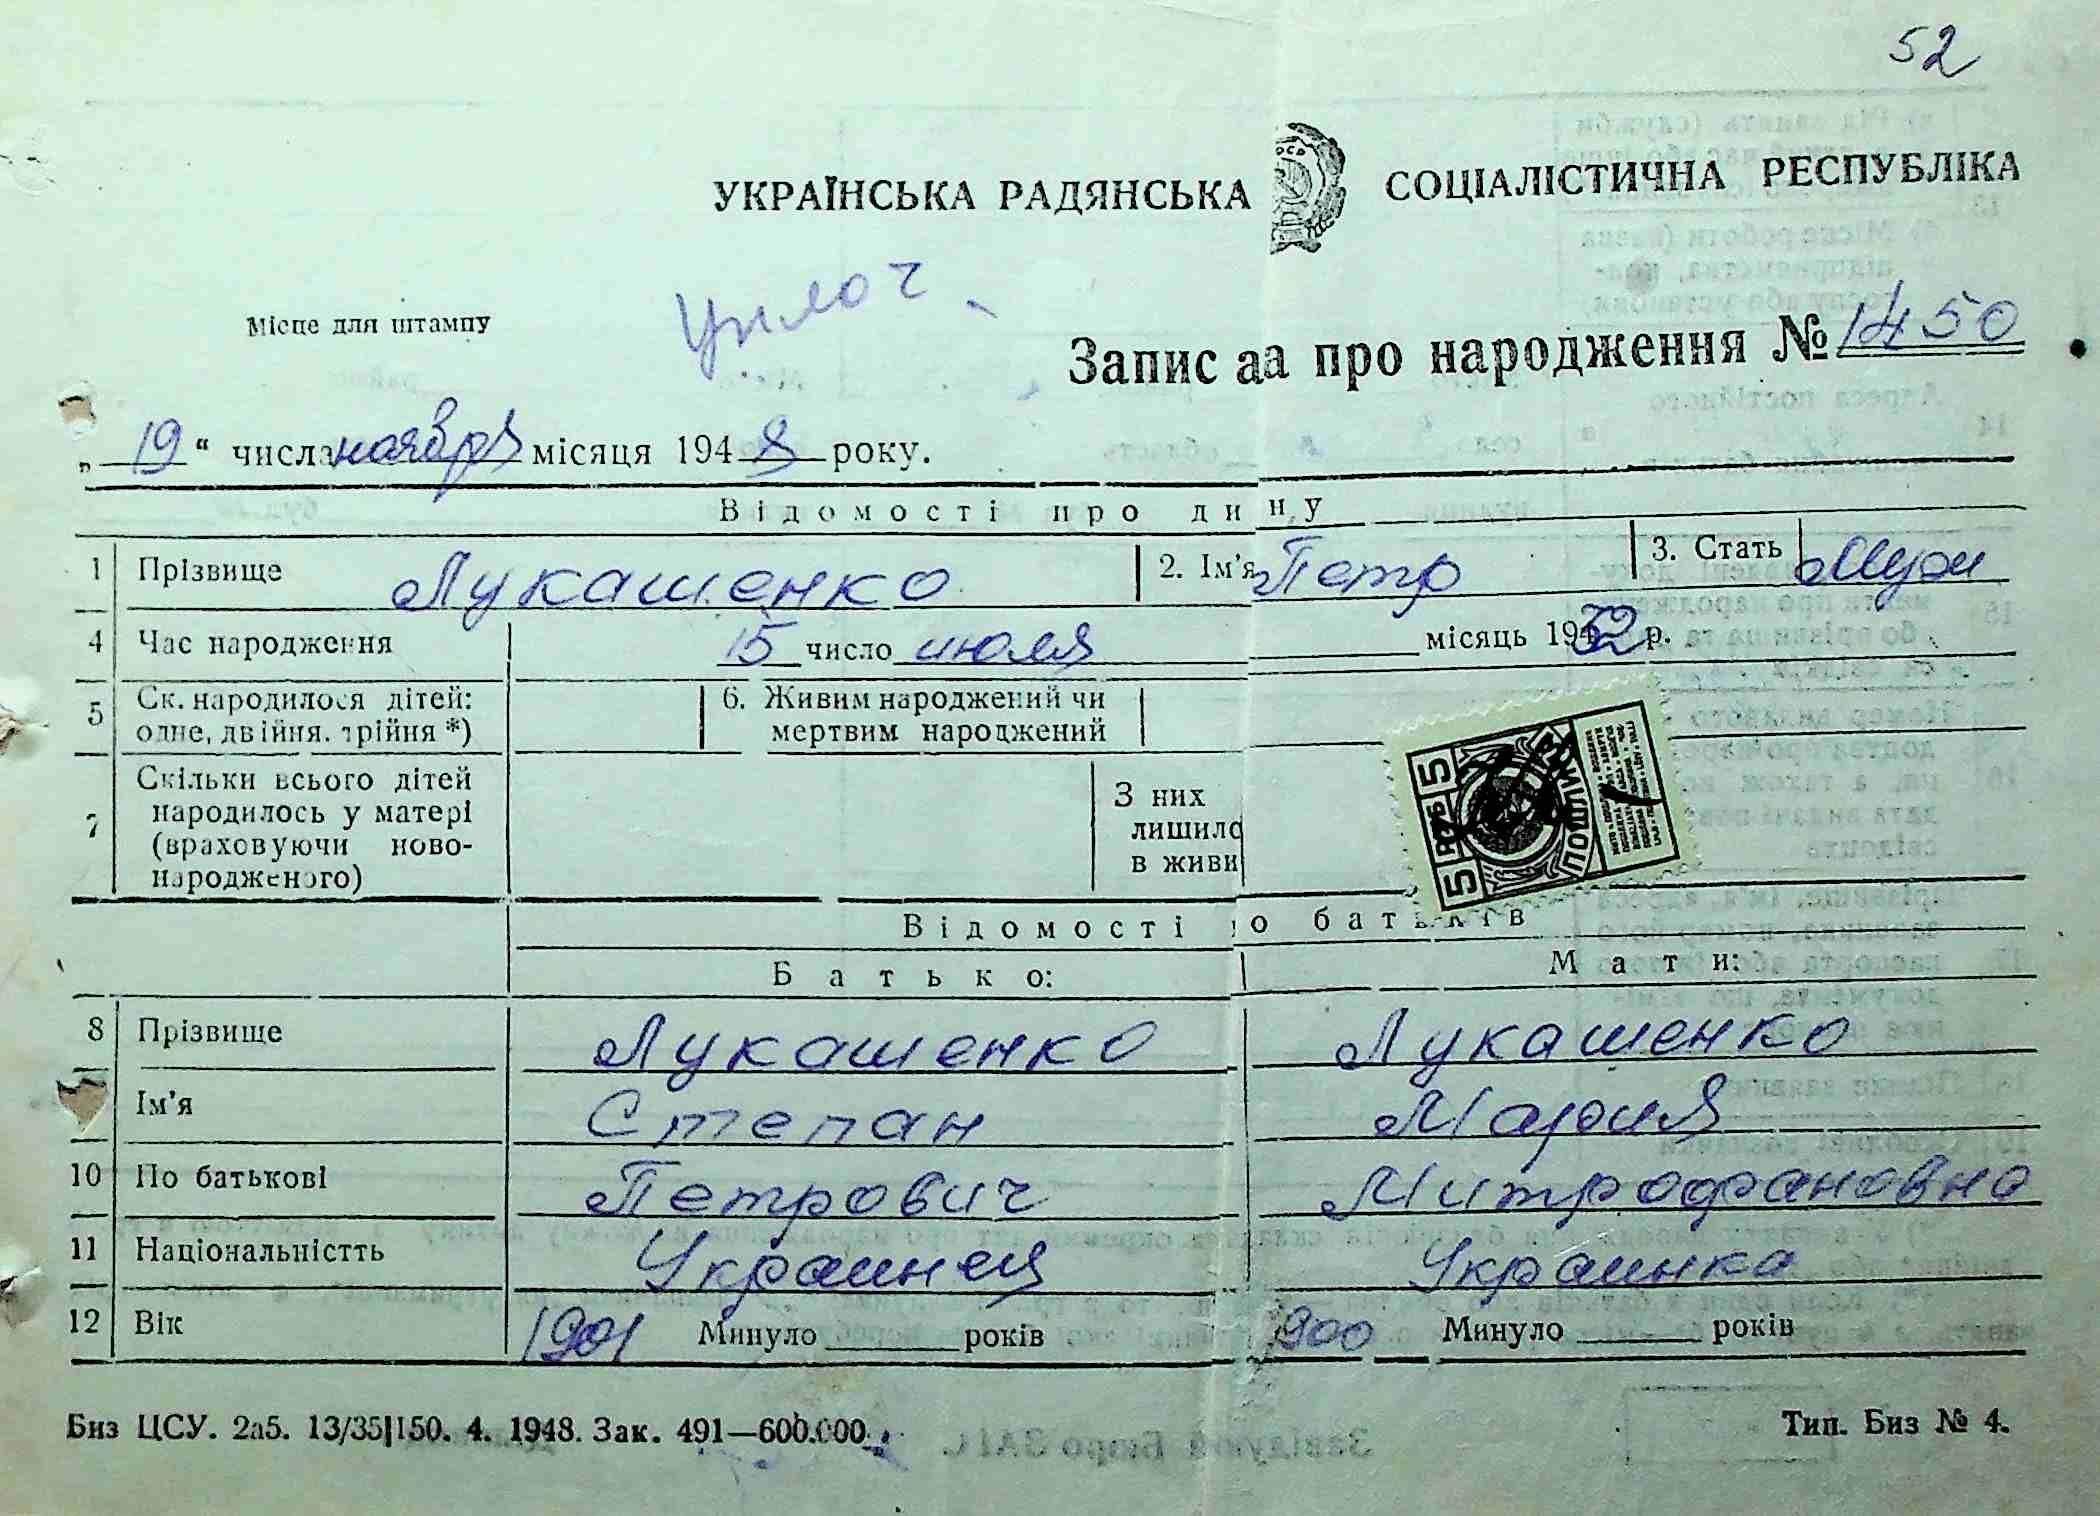 52
УКРАЇНСЬКА РАДЯНСЬКА СОЦІАЛІСТИЧНА РЕСПУБЛІКА
Місце для штампу
Запис аа про народження № 1450
„ 19 “ числа ноября місяця 194 8 року.
Відомості про дину
1 Прізвище Лукашенко 2. Ім’я Петр 3. Стать Муж
4 Час народження 15 число июля місяць 1932 р.
5 Ск. народилося дітей: одне, двійня, трійня *) 6. Живим народжений чи мертвим народжений
7 Скільки всього дітей народилось у матері (враховуючи новонародженого) З них лишило в живи
5 РУБ 5 ПОШЛИНА
Відомості о батьків
Батько: Мати:
8 Прізвище Лукашенко Лукашенко
Ім’я Степан Мария
10 По батькові Петрович Митрофановна
11 Національністть Украинец Украинка
12 Вік 1901 Минуло років 1900 Минуло років
Биз ЦСУ. 2а5. 13/35|150. 4. 1948. Зак. 491—600.000. Тип. Биз № 4.